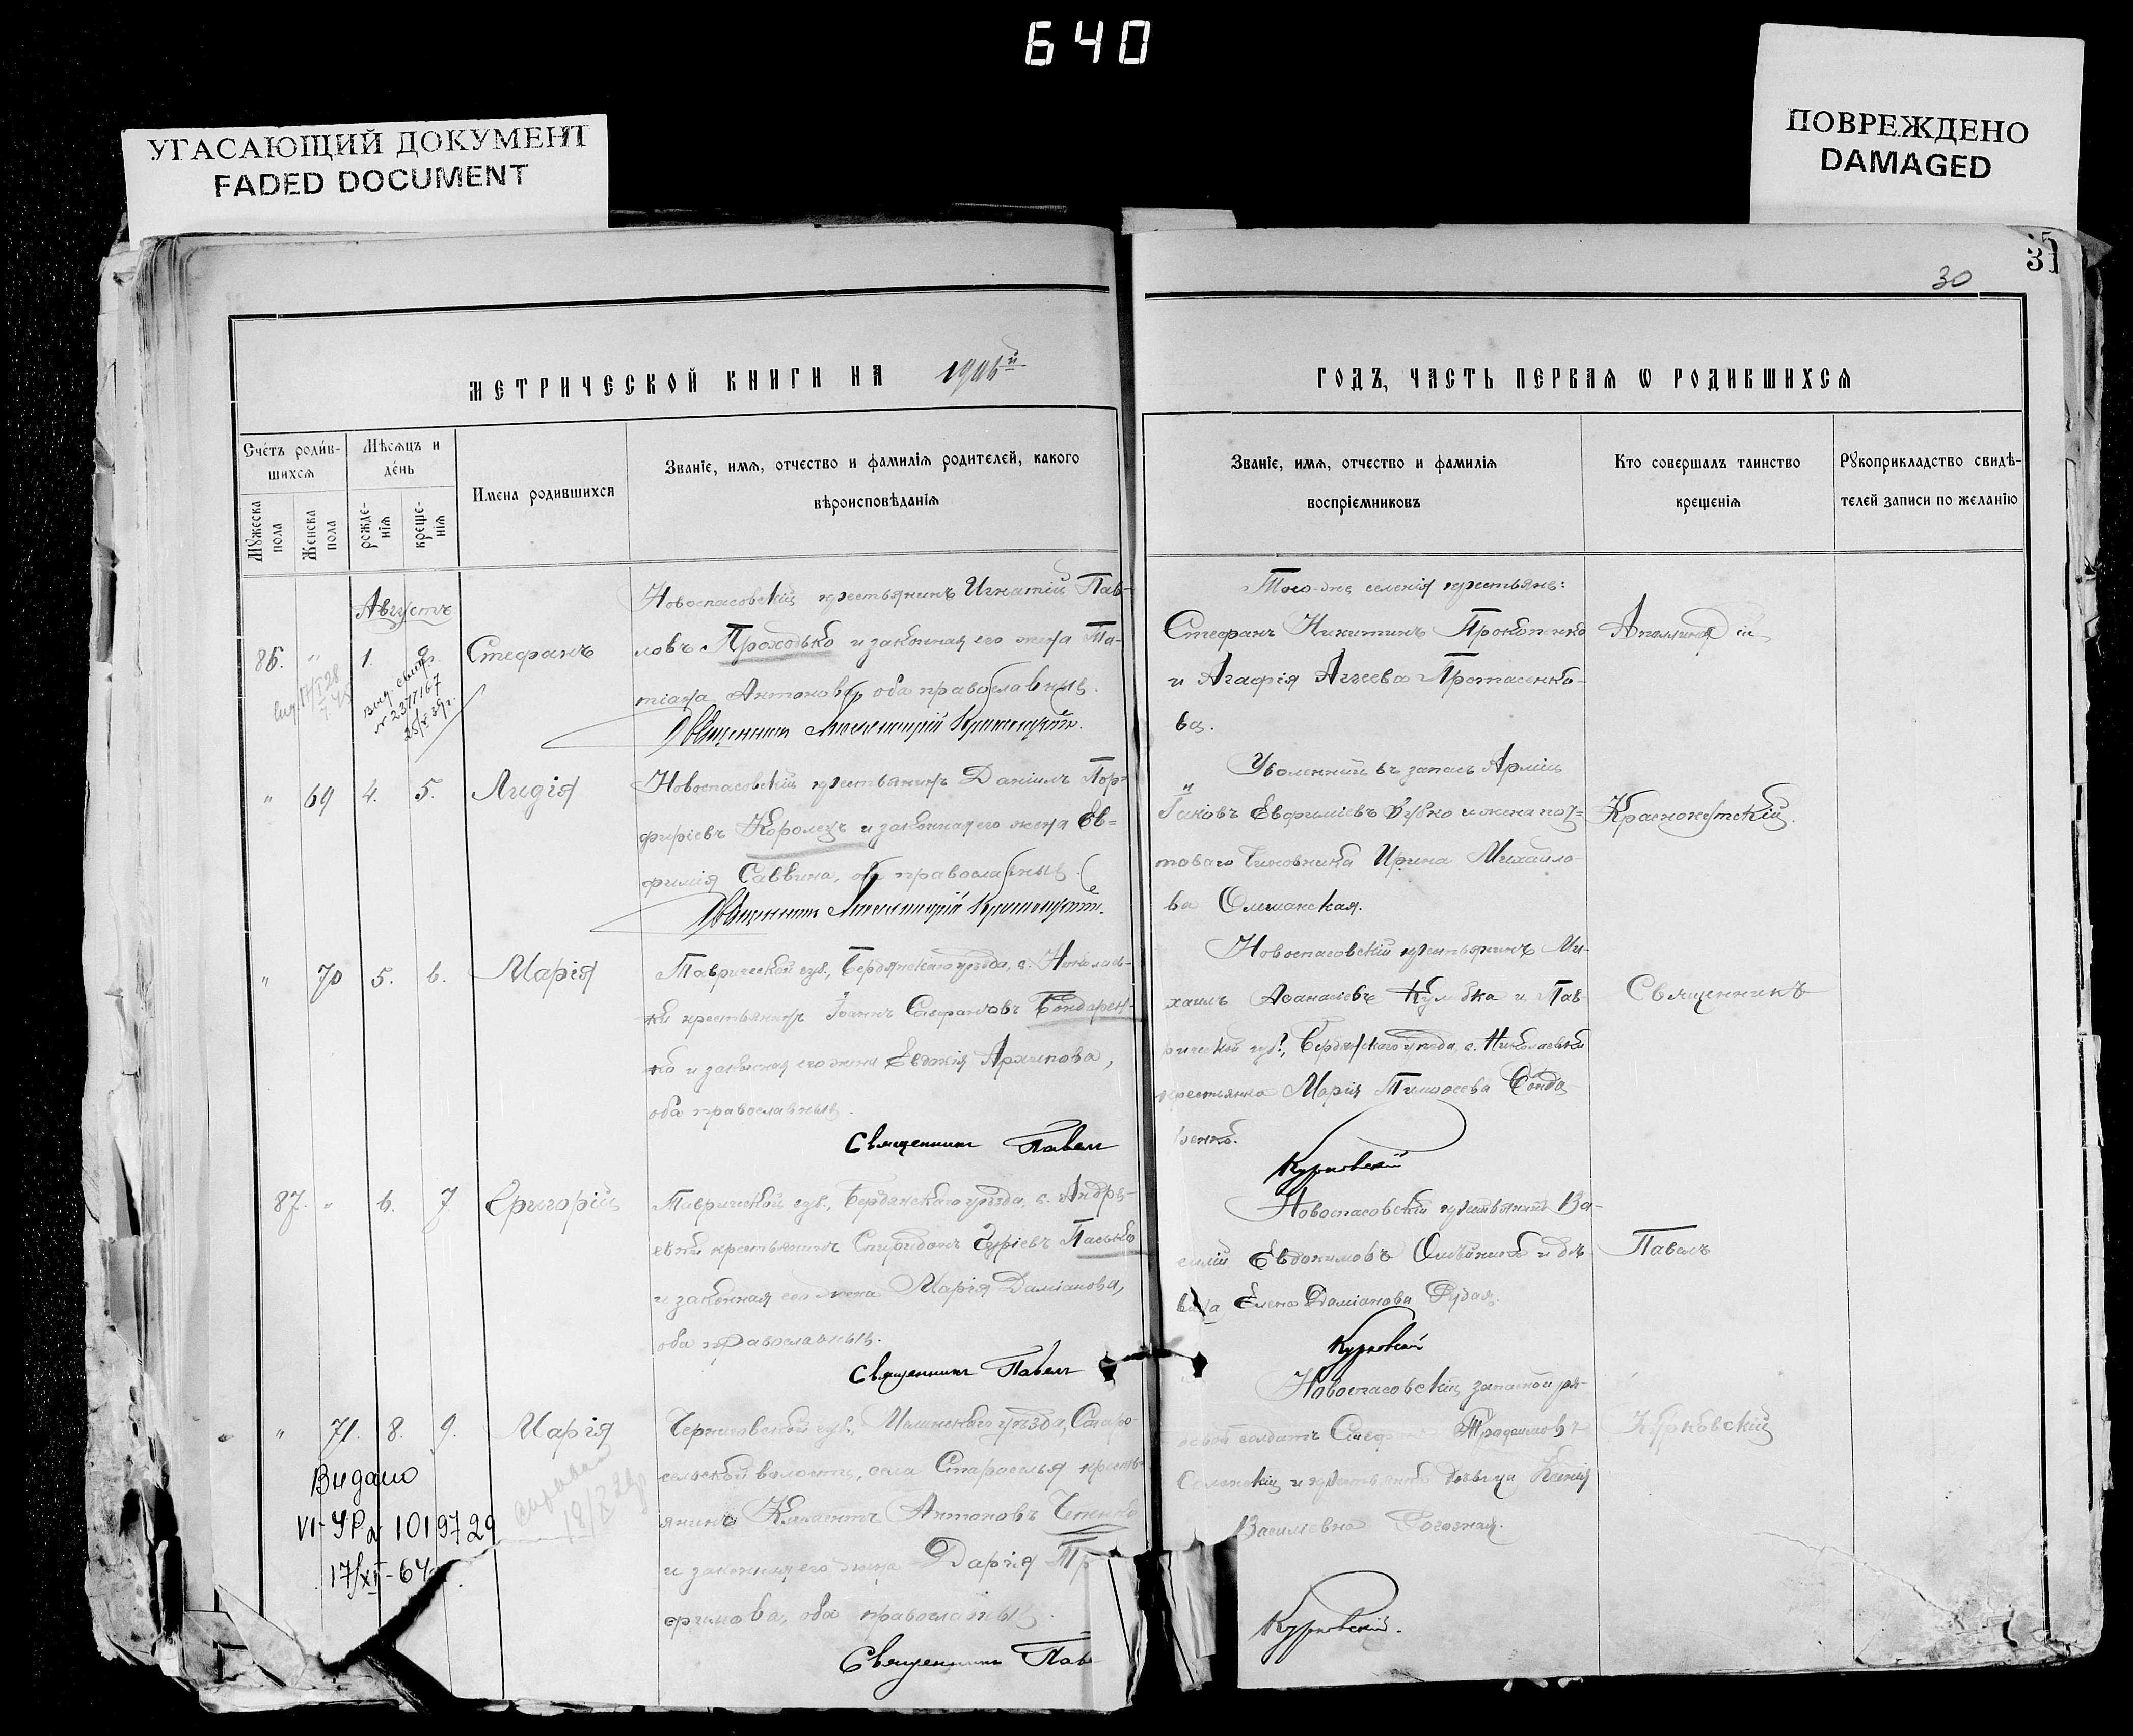 640
УГАСАЮЩИЙ ДОКУМЕНТ
FADED DOCUMENT
ПОВРЕЖДЕНО
DAMAGED
31
30
МЕТРИЧЕСКОЙ КНИГИ НА 1906й
ГОДЪ, ЧАСТЬ ПЕРВАЯ Ѡ РОДИВШИХСЯ
Счетъ родив-
шихся
Мужеска
пола
Женска
пола
Мѣсяцъ и
день
рожде-
нія
креще-
нія
Имена родившихся
Званіе, имя, отчество и фамилія родителей, какого
вѣроисповѣданія
Званіе, имя, отчество и фамилія
воспріемниковъ
Кто совершалъ таинство
крещенія
Рукоприкладство свидѣ-
телей записи по желанію
Августъ
86. " 1. Стефанъ
Новоспасовскій крестьянинъ Игнатій Пав-
ловъ Проходько и законная его жена Та-
тіана Антонова, оба православные.
Священникъ
Того-же селенія крестьяне:
Стефанъ Никитинъ Прокопенко
и Агафія Аггеева Протасенко-
ва.
Аполлинарій
" 69 4. 5. Лидія
Новоспасовскій крестьянинъ Даніилъ Пор-
фиріевъ Королецъ и законная его жена Ев-
фимія Саввина, оба православные.
Священникъ
Уволенный въ запасъ Арміи
Іаковъ Евфиміевъ Зубко и жена поч-
товаго Чиновника Ирина Михайло-
ва Олишанская.
Краснокутскій.
" 70 5. 6. Марія
Таврической губ., Бердянскаго уѣзда, с. Николаев-
ки крестьянинъ Іоаннъ Бондарен-
ко и законная его жена Евдокія Архипова,
оба православные.
Священникъ Павелъ Курковскій
Новоспасовскій крестьянинъ Ми-
хаилъ Аѳанасіевъ и Тав-
рической губ., Бердянскаго уѣзда, с. Николаевки
крестьянка Марія Тимоѳеева Бонда
ренко.
Священникъ
87. " 6. 7. Григорій
Таврической губ., Бердянскаго уѣзда, с. Андре-
евки крестьянинъ Спиридонъ Гуріевъ Пасько
и законная его жена Марія Даміанова,
оба православные.
Священникъ Павелъ Курковскій
Новоспасовскій крестьянинъ Ва-
силій Евдокимовъ и дѣ-
вица Елена Даміанова Рудая.
Павелъ
" 71. 8. 9. Марія
Черниговской губ., уѣзда, Старо-
сельской волости, села Староселья кресть-
янинъ Климентъ Антоновъ
и законная его жена Дарія Тр
офимова, оба православные.
Священникъ Паве Курковскій.
Новоспасовскій запасной ря-
довой солдатъ Стеф Трофимовъ
и крестьянка дѣвица Ксенія
Василіевна
Курковскій
Видано
VI-УР № 1019729
17/XI-64